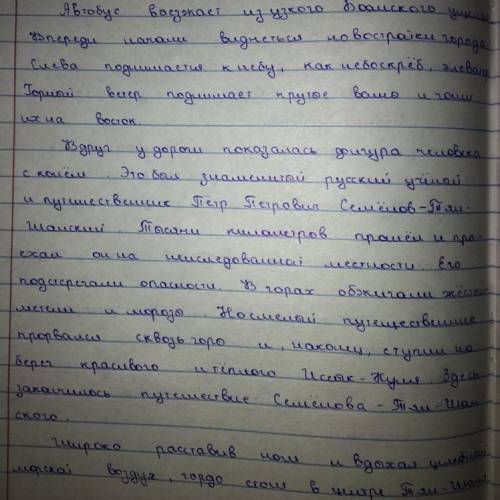 Автобус въезжает из узкого Боомского ущелья
Впереди начали виднеться новостройки города
Слева поднимается к небу, как небоскрёб, элеватор
Горный ветер поднимает крутые волны и гонит
их на восток.
Вдруг у дороги показалась фигура человека
с конём. Это был знаменитый русский учёный
и путешественник Пётр Петрович Семёнов-Тян-
Шанский. Тысячи километров прошёл и про-
ехал он по неисследованной местности. Его
подстерегали опасности. В горах обжигали жёсткие
метели и морозы. Но смелый путешественник
прорвался сквозь горы и, наконец, ступил на
берег красивого и тёплого Иссык-Куля. Здесь
закончилось путешествие Семёнова-Тян-Шан-
ского.
Широко расставив ноги и вдохал целебный
морской воздух, гордо стоит в центре Тян-Шаня